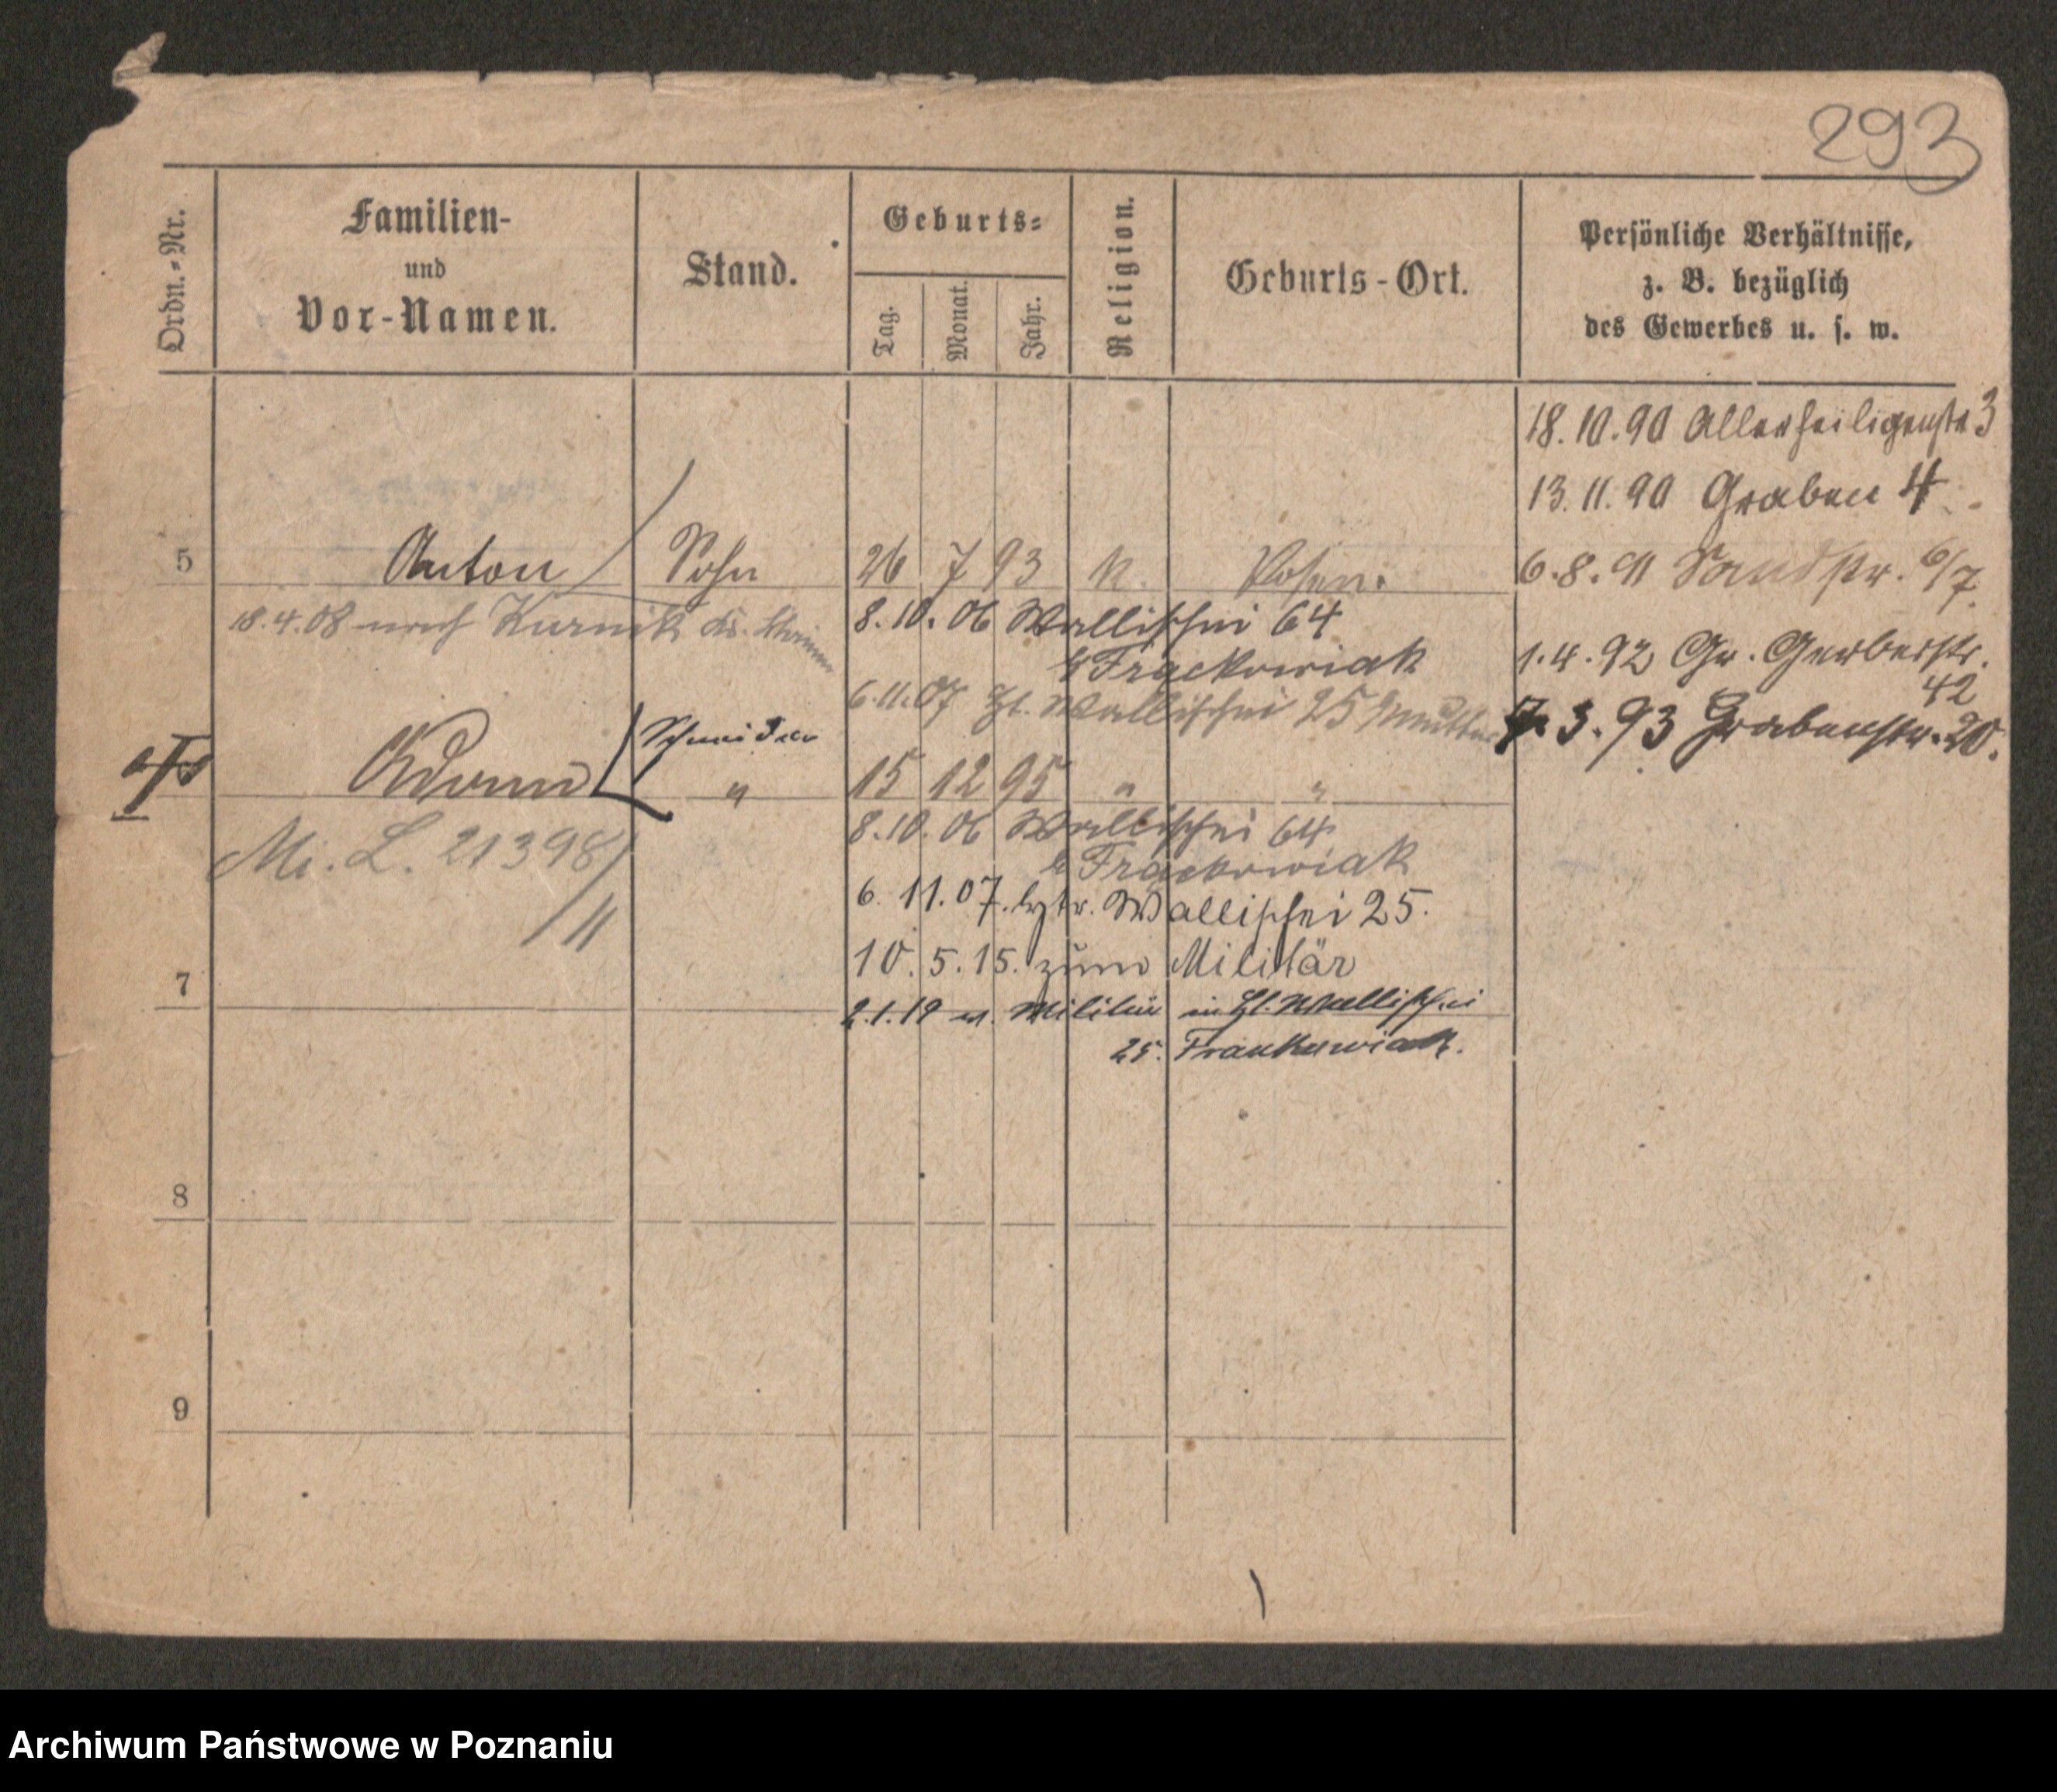 293
Ordn.-Nr.
Familien-
und
Vor-Namen.
Stand.
Geburts-
Tag.
Monat.
Jahr.
Religion.
Geburts-Ort.
Persönliche Verhältnisse,
z. B. bezüglich
des Gewerbes u. s. w.
18.10.90 Allerheiligenstr 3
13.11.90 Graben 4
5 Anton Sohn 26 7 93 k. Posen.
6.8.91 Sandstr. 6/7.
18.4.08 nach Kurnik Kr. Schrimm
8.10.06 Wallischei 64
b Frąckowiak
1.4.92 Gr. Gerberstr.
42
6.11.07 Wallischei 25 Mutter
7.3.93 Grabenstr. 20.
Schneider
Adam " 15 12 95 " "
Mi. L. 21398/
/11
8.10.06 Wallischei 64
b Frąckowiak
6.11.07. Wallischei 25.
10.5.15. zum Militär
7
2.1.19 v. Militär in Wallischei
25. Frankowiak.
8
9
Archiwum Państwowe w Poznaniu